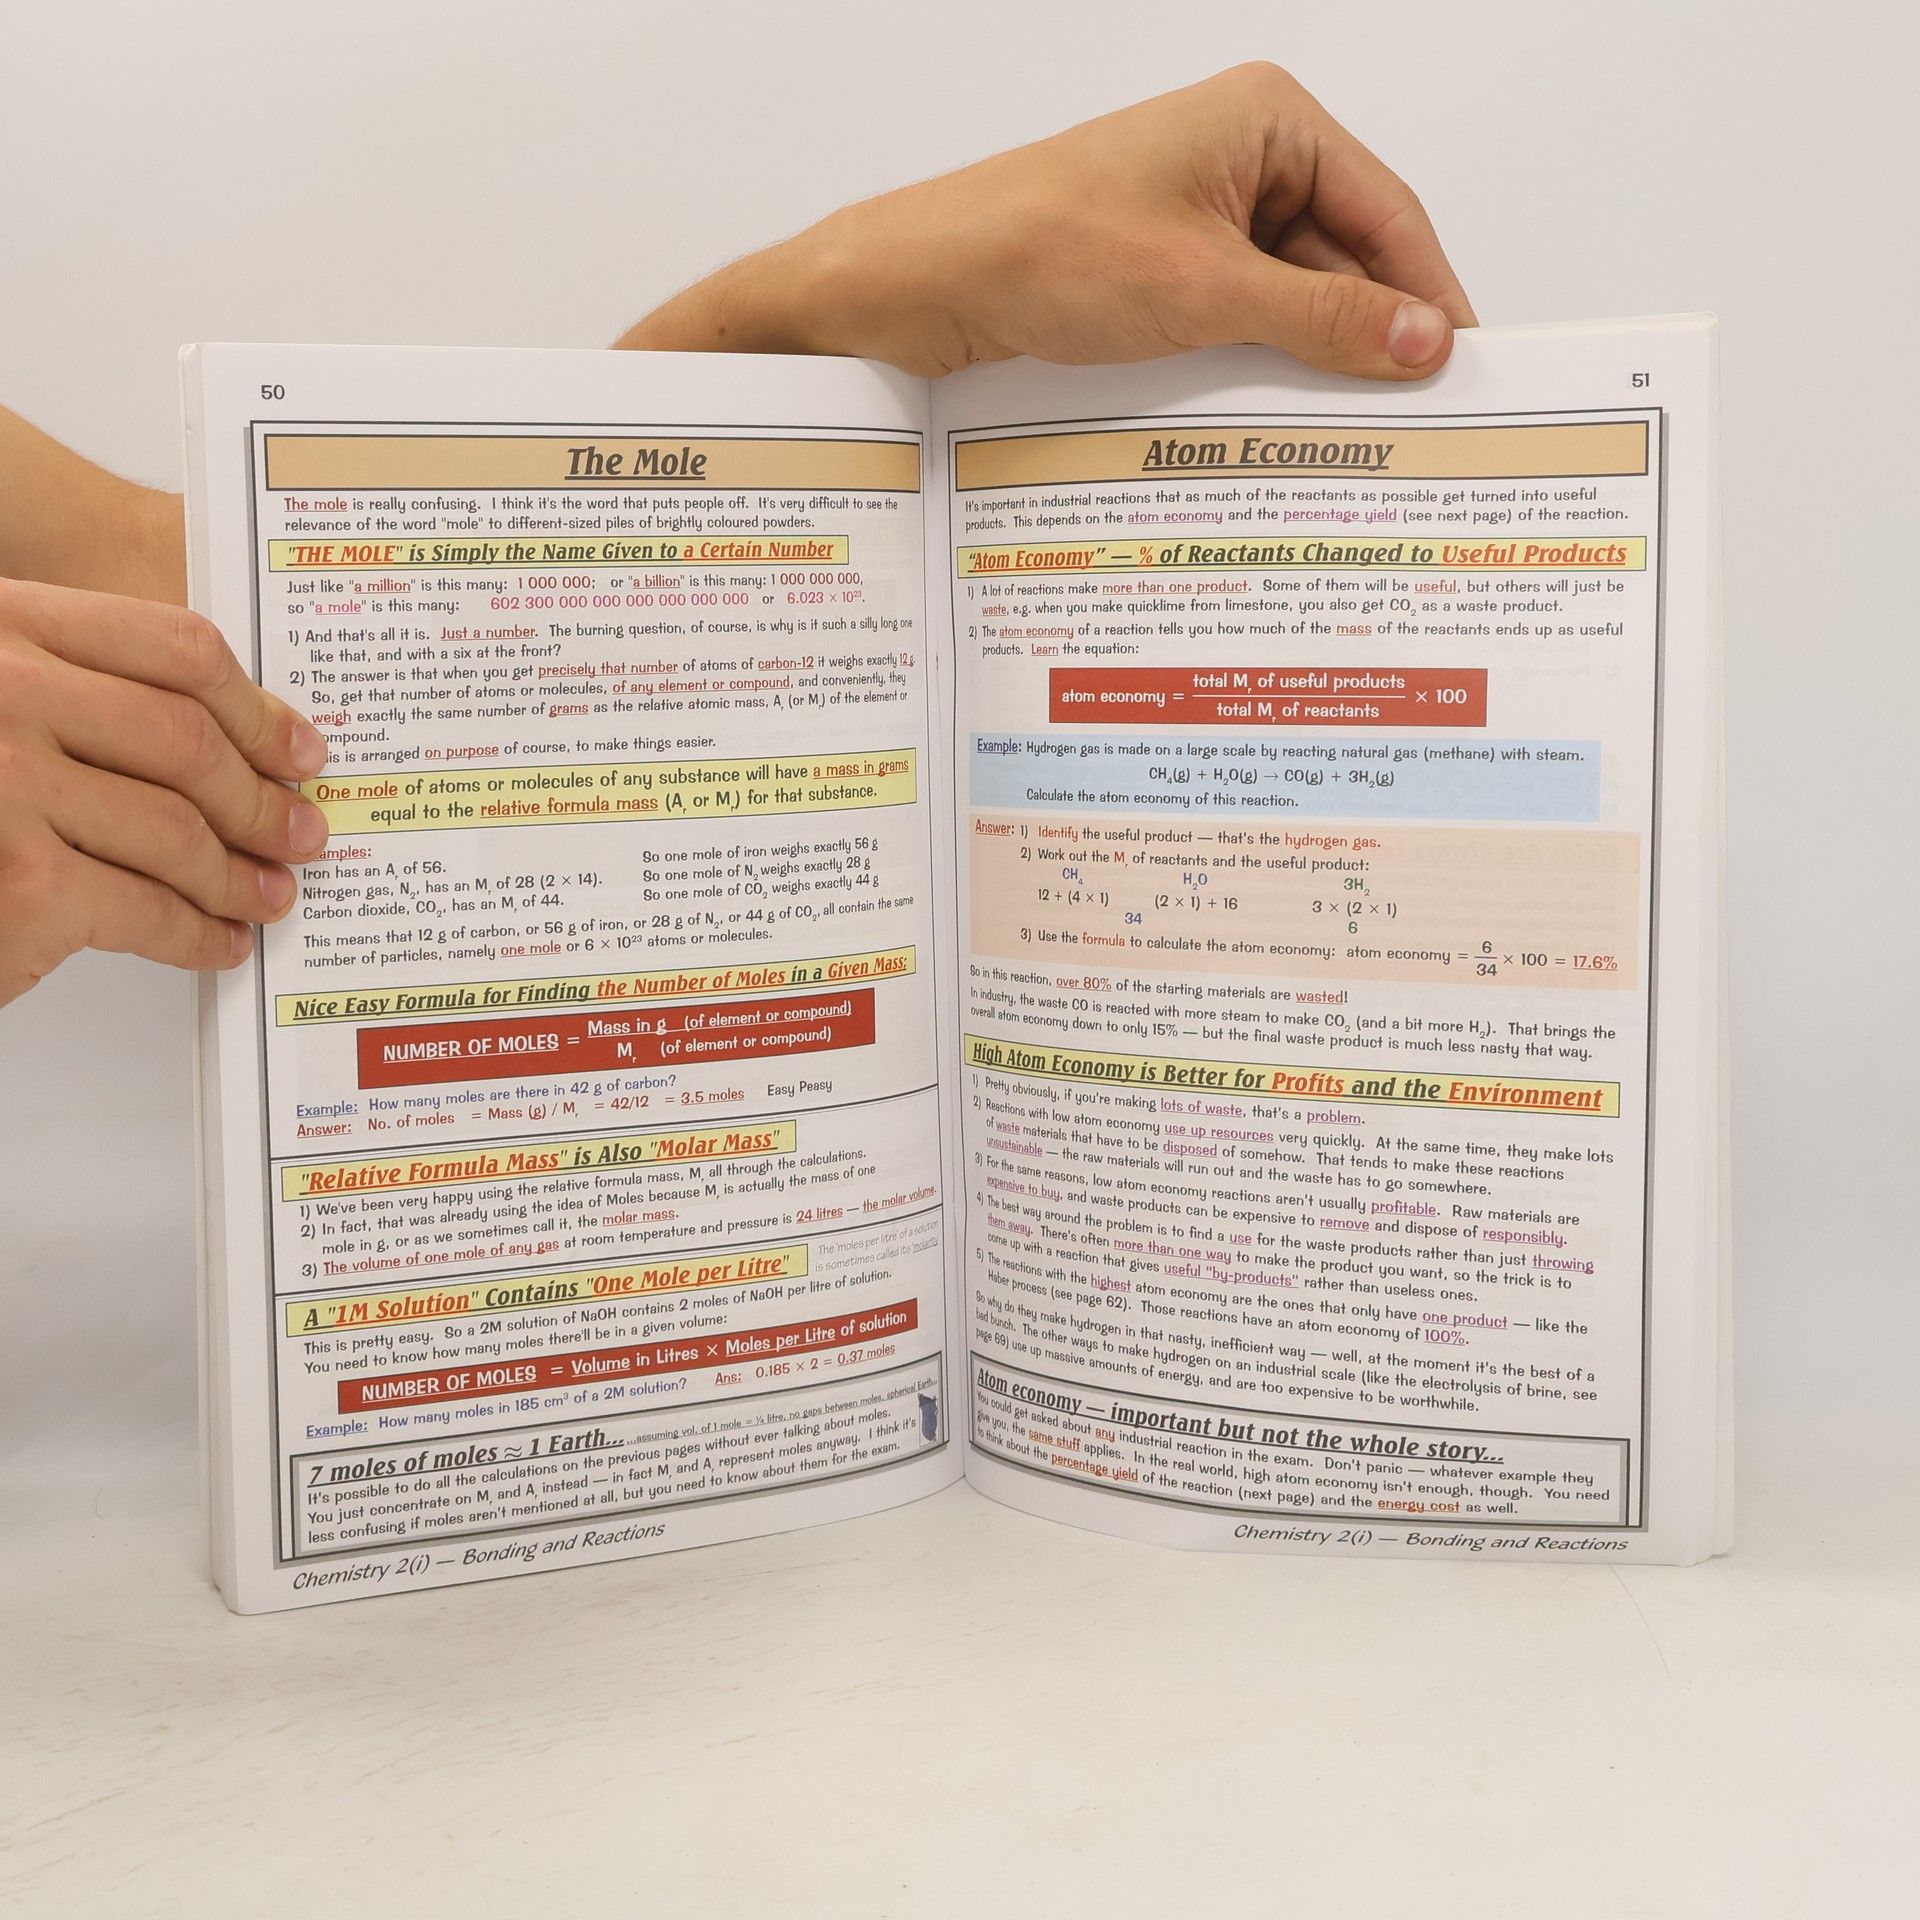 50
The Mole
The mole is really confusing. I think it's the word that puts people off. It's very difficult to see the
relevance of the word "mole" to different-sized piles of brightly coloured powders.
"THE MOLE" is Simply the Name Given to a Certain Number
Just like "a million" is this many: 1 000 000; or "a billion" is this many: 1 000 000 000,
so "a mole" is this many: 602 300 000 000 000 000 000 000 or 6.023 × 10²³.
1) And that's all it is. Just a number. The burning question, of course, is why is it such a silly long one
like that, and with a six at the front?
2) The answer is that when you get precisely that number of atoms of carbon-12 it weighs exactly 12 g.
So, get that number of atoms or molecules, of any element or compound, and conveniently, they
weigh exactly the same number of grams as the relative atomic mass, Aᵣ (or Mᵣ) of the element or
ompound.
is is arranged on purpose of course, to make things easier.
One mole of atoms or molecules of any substance will have a mass in grams
equal to the relative formula mass (Aᵣ or Mᵣ) for that substance.
amples:
Iron has an Aᵣ of 56. So one mole of iron weighs exactly 56 g
Nitrogen gas, N₂, has an Mᵣ of 28 (2 × 14). So one mole of N₂ weighs exactly 28 g
Carbon dioxide, CO₂, has an Mᵣ of 44. So one mole of CO₂ weighs exactly 44 g
This means that 12 g of carbon, or 56 g of iron, or 28 g of N₂, or 44 g of CO₂, all contain the same
number of particles, namely one mole or 6 × 10²³ atoms or molecules.
Nice Easy Formula for Finding the Number of Moles in a Given Mass:
NUMBER OF MOLES = Mass in g (of element or compound)
Mᵣ (of element or compound)
Example: How many moles are there in 42 g of carbon?
Answer: No. of moles = Mass (g) / Mᵣ = 42/12 = 3.5 moles Easy Peasy
"Relative Formula Mass" is Also "Molar Mass"
1) We've been very happy using the relative formula mass, Mᵣ all through the calculations.
2) In fact, that was already using the idea of Moles because Mᵣ is actually the mass of one
mole in g, or as we sometimes call it, the molar mass.
3) The volume of one mole of any gas at room temperature and pressure is 24 litres — the molar volume.
A "1M Solution" Contains "One Mole per Litre"
The 'moles per litre' of a solution
is sometimes called its 'molarity'
This is pretty easy. So a 2M solution of NaOH contains 2 moles of NaOH per litre of solution.
You need to know how many moles there'll be in a given volume:
NUMBER OF MOLES = Volume in Litres × Moles per Litre of solution
Example: How many moles in 185 cm³ of a 2M solution? Ans: 0.185 × 2 = 0.37 moles
7 moles of moles ≈ 1 Earth... ...assuming vol. of 1 mole = ¼ litre, no gaps between moles, spherical Earth...
It's possible to do all the calculations on the previous pages without ever talking about moles.
You just concentrate on Mᵣ and Aᵣ instead — in fact Mᵣ and Aᵣ represent moles anyway. I think it's
less confusing if moles aren't mentioned at all, but you need to know about them for the exam.
Chemistry 2(i) — Bonding and Reactions
51
Atom Economy
It's important in industrial reactions that as much of the reactants as possible get turned into useful
products. This depends on the atom economy and the percentage yield (see next page) of the reaction.
"Atom Economy" — % of Reactants Changed to Useful Products
1) A lot of reactions make more than one product. Some of them will be useful, but others will just be
waste, e.g. when you make quicklime from limestone, you also get CO₂ as a waste product.
2) The atom economy of a reaction tells you how much of the mass of the reactants ends up as useful
products. Learn the equation:
total Mᵣ of useful products
atom economy = × 100
total Mᵣ of reactants
Example: Hydrogen gas is made on a large scale by reacting natural gas (methane) with steam.
CH₄(g) + H₂O(g) → CO(g) + 3H₂(g)
Calculate the atom economy of this reaction.
Answer: 1) Identify the useful product — that's the hydrogen gas.
2) Work out the Mᵣ of reactants and the useful product:
CH₄ H₂O 3H₂
12 + (4 × 1) (2 × 1) + 16 3 × (2 × 1)
34 6
3) Use the formula to calculate the atom economy: atom economy = 6/34 × 100 = 17.6%
So in this reaction, over 80% of the starting materials are wasted!
In industry, the waste CO is reacted with more steam to make CO₂ (and a bit more H₂). That brings the
overall atom economy down to only 15% — but the final waste product is much less nasty that way.
High Atom Economy is Better for Profits and the Environment
1) Pretty obviously, if you're making lots of waste, that's a problem.
2) Reactions with low atom economy use up resources very quickly. At the same time, they make lots
of waste materials that have to be disposed of somehow. That tends to make these reactions
unsustainable — the raw materials will run out and the waste has to go somewhere.
3) For the same reasons, low atom economy reactions aren't usually profitable. Raw materials are
expensive to buy, and waste products can be expensive to remove and dispose of responsibly.
4) The best way around the problem is to find a use for the waste products rather than just throwing
them away. There's often more than one way to make the product you want, so the trick is to
come up with a reaction that gives useful "by-products" rather than useless ones.
5) The reactions with the highest atom economy are the ones that only have one product — like the
Haber process (see page 62). Those reactions have an atom economy of 100%.
So why do they make hydrogen in that nasty, inefficient way — well, at the moment it's the best of a
bad bunch. The other ways to make hydrogen on an industrial scale (like the electrolysis of brine, see
page 69) use up massive amounts of energy, and are too expensive to be worthwhile.
Atom economy — important but not the whole story...
You could get asked about any industrial reaction in the exam. Don't panic — whatever example they
give you, the same stuff applies. In the real world, high atom economy isn't enough, though. You need
to think about the percentage yield of the reaction (next page) and the energy cost as well.
Chemistry 2(i) — Bonding and Reactions